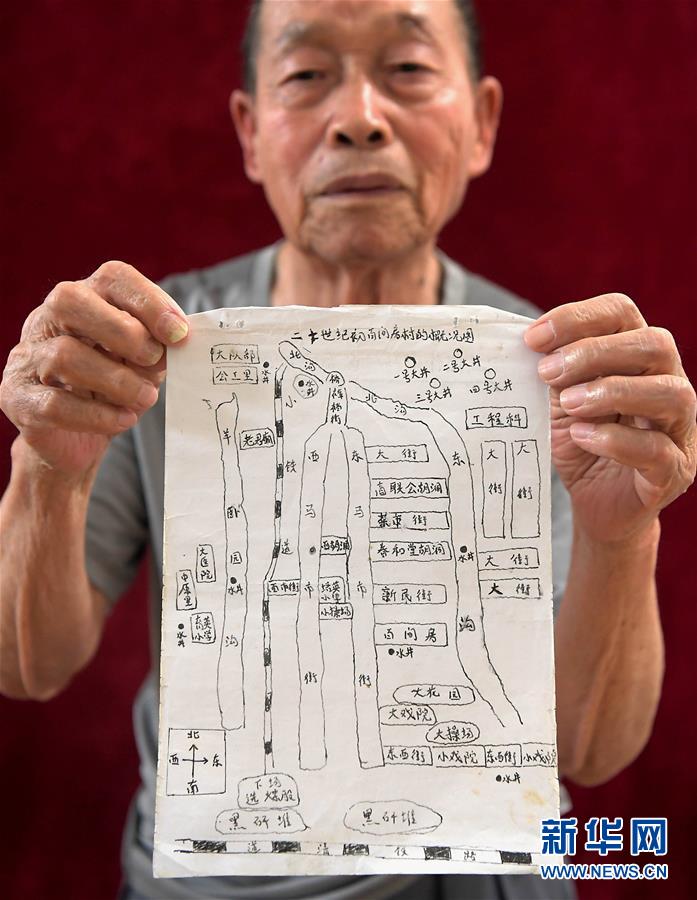 二十世纪初百间房村的概况图
大队部
公工里
水井
北
河
水井
小
铁
道
北
沟
一号大井
二号大井
三号大井
四号大井
工程科
羊
卧
园
沟
水井
老君庙
西
马
市
街
东
马
市
街
大街
高联公胡洞
菜市街
泰和堂胡洞
新民街
百间房
水井
东
沟
水井
大
街
大
街
大街
大街
大医院
中原里
育英小学
水井
西市街
西胡洞
培英小学
小操场
大花园
大戏院
大操场
东西街
小戏院
东西街
小戏院
水井
北
西 东
南
下场
选煤股
黑矸堆
黑矸堆
道清铁路
新华网
WWW.NEWS.CN